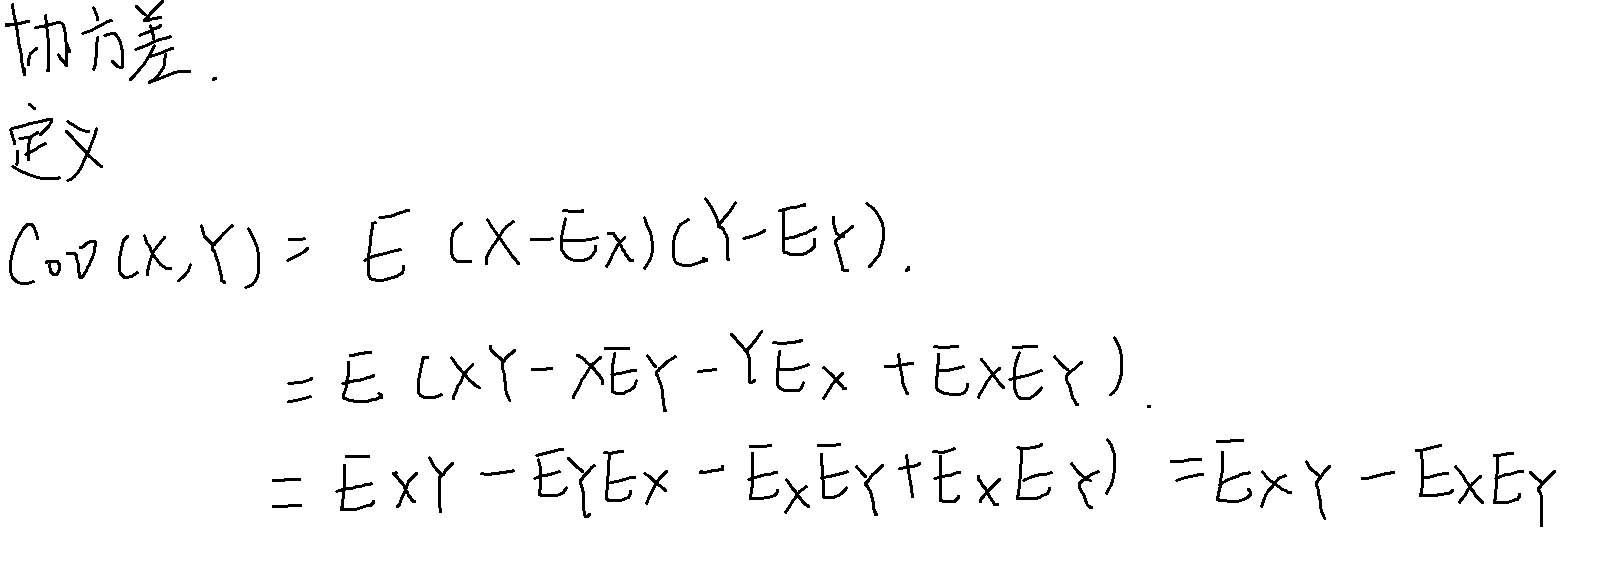 协方差.
定义
Cov(X,Y) = E (X-EX)(Y-EY).
= E (XY-XEY-YEX+EXEY).
= EXY-EYEX-EXEY+EXEY) =EXY-EXEY